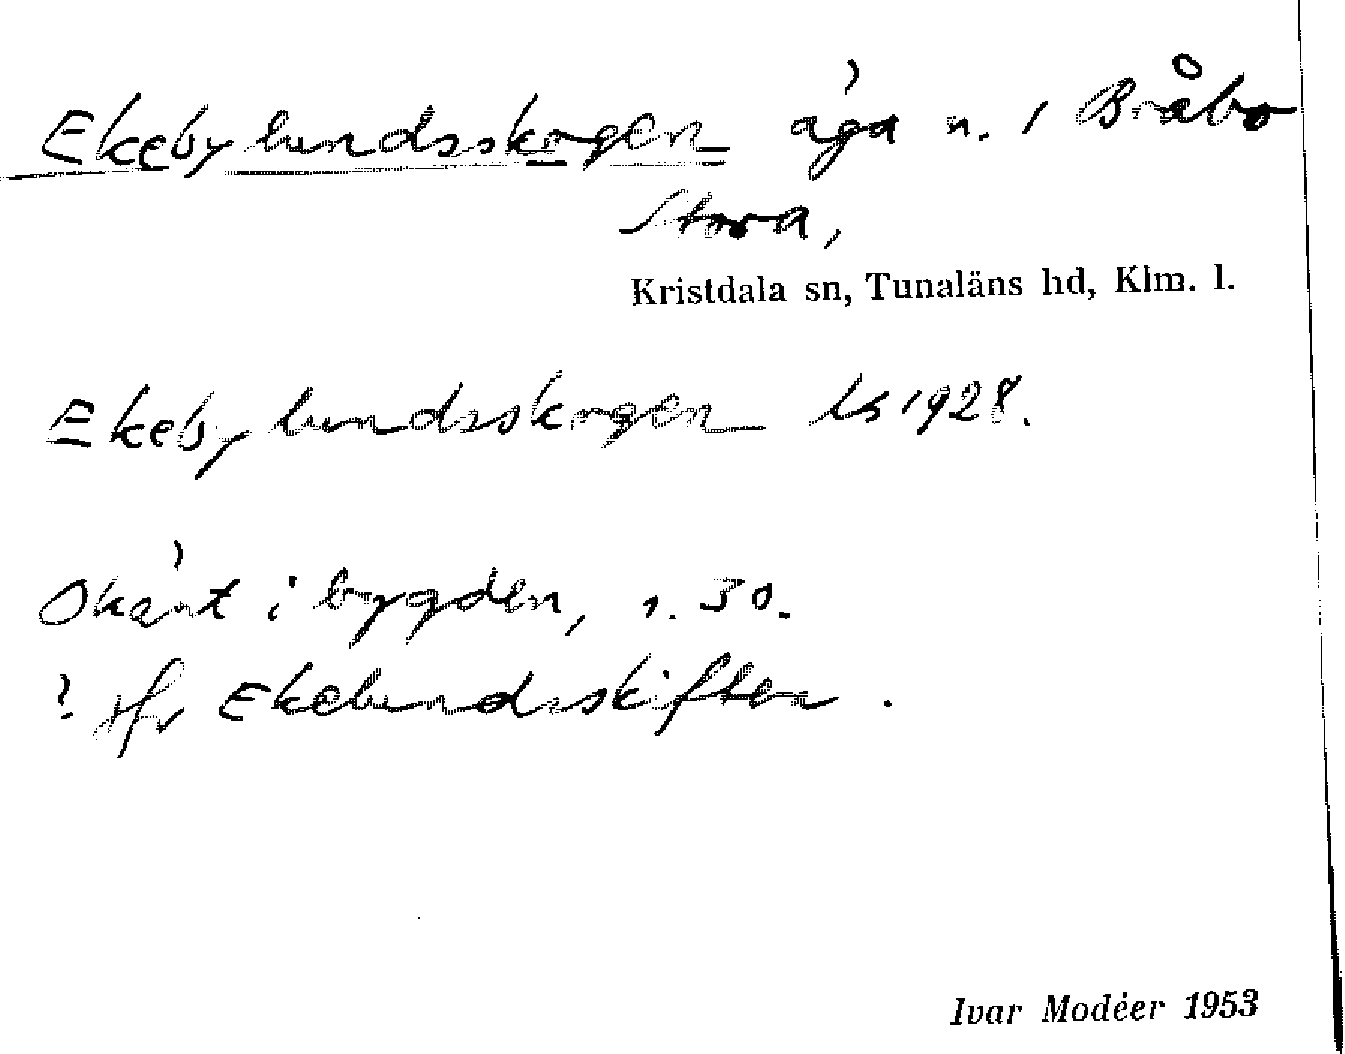 Ekebylundsskogen äga n. 1 Bråbo
Stora,
Kristdala sn, Tunaläns hd, Klm. l.
Ekebylundsskogen ls 1928.
Okänt i bygden, s. 30.
? jfr Ekelundsskiften.
Ivar Modéer 1953